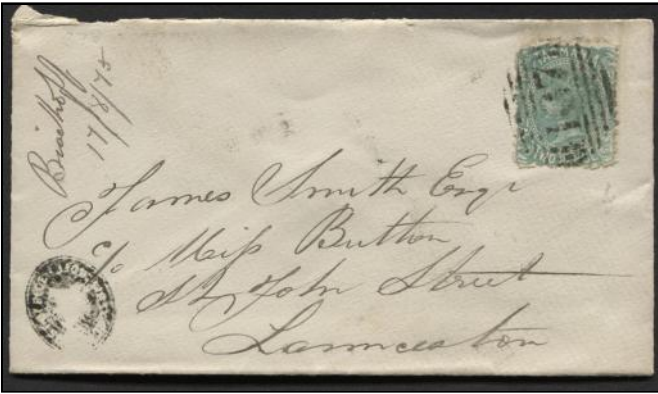 Bischoff
17/8/75
James Smith Esqr
c/o Miss Button
St John Street
Launceston